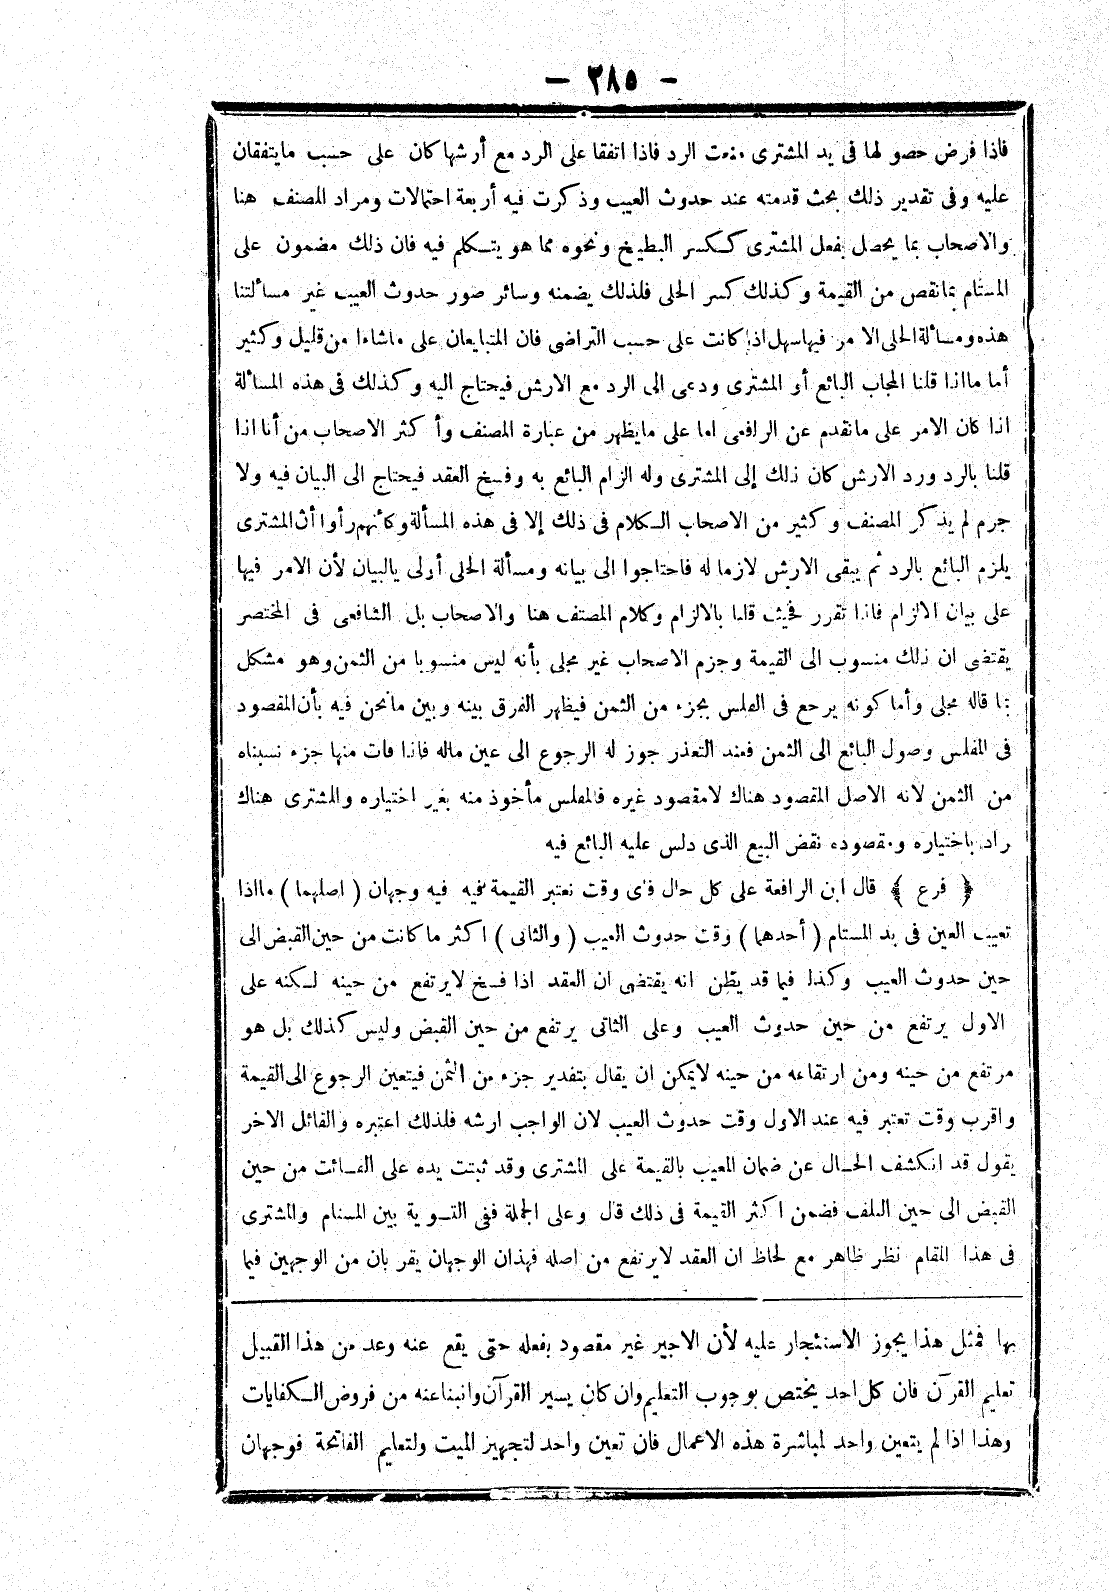 — ٢٨٥ —
فاذا فرض حصولها فى يد المشترى منعت الرد فاذا اتفقا على الرد مع أرشها كان على حسب مايتفقان
عليه وفى تقدير ذلك بحث قدمته عند حدوث العيب وذكرت فيه أربعة احتمالات ومراد المصنف هنا
والاصحاب بما يحصل بفعل المشترى كـكسر البطيخ ونحوه مما هو يتـكلم فيه فان ذلك مضمون على
المستام بمانقص من القيمة وكذلك كسر الحلى فلذلك يضمنه وسائر صور حدوث العيب غير مسألتنا
هذه ومسألة الحلى الامر فيها سهل اذا كانت على حسب التراضى فان المتبايعان على ماشاءا من قليل وكثير
أما مااذا قلنا المجاب البائع أو المشترى ودعى الى الرد مع الارش فيحتاج اليه وكذلك فى هذه المسألة
اذا كان الامر على ماتقدم عن الرافعى اما على مايظهر من عبارة المصنف وأكثر الاصحاب من أنا اذا
قلنا بالرد ورد الارش كان ذلك إلى المشترى وله الزام البائع به وفسخ العقد فيحتاج الى البيان فيه ولا
جرم لم يذكر المصنف وكثير من الاصحاب الـكلام فى ذلك إلا فى هذه المسألة وكأنهم رأوا أن المشترى
يلزم البائع بالرد ثم يبقى الارش لازما له فاحتاجوا الى بيانه ومسألة الحلى أولى يالبيان لأن الامر فيها
على بيان الالزام فاذا تقرر فحيث قلنا بالالزام وكلام المصنف هنا والاصحاب بل الشافعى فى المختصر
يقتضى ان ذلك منسوب الى القيمة وجزم الاصحاب غير مجلى بأنه ليس منسوبا من الثمن وهو مشكل
بما قاله مجلى وأما كونه يرجع فى الفلس بجزء من الثمن فيظهر الفرق بينه وبين مانحن فيه بأن المقصود
فى المفلس وصول البائع الى الثمن فعند التعذر جوز له الرجوع الى عين ماله فاذا فات منها جزء نسبناه
من الثمن لانه الاصل المقصود هناك لامقصود غيره فالمفلس مأخوذ منه بغير اختياره والمشترى هناك
راد باختياره ومقصوده نقض البيع الذى دلس عليه البائع فيه
﴿ فرع ﴾ قال ابن الرافعة على كل حال فأى وقت نعتبر القيمة فيه فيه وجهان ( اصلهما ) مااذا
تعيب العين فى يد المستام ( أحدهما ) وقت حدوث العيب ( والثانى ) اكثر ما كانت من حين القبض الى
حين حدوث العيب وكذا فيما قد يظن انه يقتضى ان العقد اذا فسخ لايرتفع من حينه لـكنه على
الاول يرتفع من حين حدوث العيب وعلى الثانى يرتفع من حين القبض وليس كذلك بل هو
مرتفع من حينه ومن ارتفاعه من حينه لايمكن ان يقال بتقدير جزء من الثمن فيتعين الرجوع الى القيمة
واقرب وقت تعتبر فيه عند الاول وقت حدوث العيب لان الواجب ارشه فلذلك اعتبره والقائل الاخر
يقول قد انكشف الحـال عن ضمان المعيب بالقيمة على المشترى وقد ثبتت يده على الفـائت من حين
القبض الى حين التلف فضمن اكثر القيمة فى ذلك قال وعلى الجملة ففى التسوية بين المستام والمشترى
فى هذا المقام نظر ظاهر مع لحاظ ان العقد لايرتفع من اصله فهذان الوجهان يقربان من الوجهين فيما
بها فمثل هذا يجوز الاستئجار عليه لأن الاجير غير مقصود بفعله حتى يقع عنه وعد من هذا القبيل
تعليم القرآن فان كل احد يختص بوجوب التعليم وان كان يسير القرآن وانبناعنه من فروض الـكفايات
وهذا اذا لم يتعين واحد لمباشرة هذه الاعمال فان تعين واحد لتجهيز الميت ولتعليم الفاتحة فوجهان